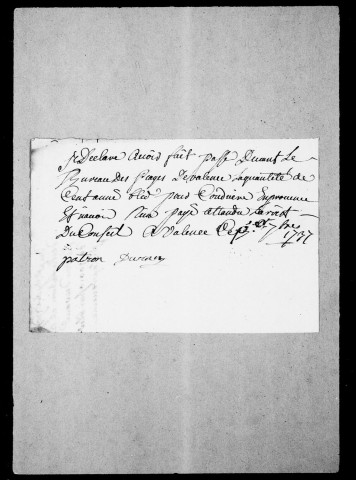 Je Declare Avoir fait passé Devant Le
Bureau des peages De valence la quantité de
Cent anné bled pour Conduire En provence
Et n'avoir Rien payé attandu La rest
Du Conseil A valence Ce 7bre 1737
patron